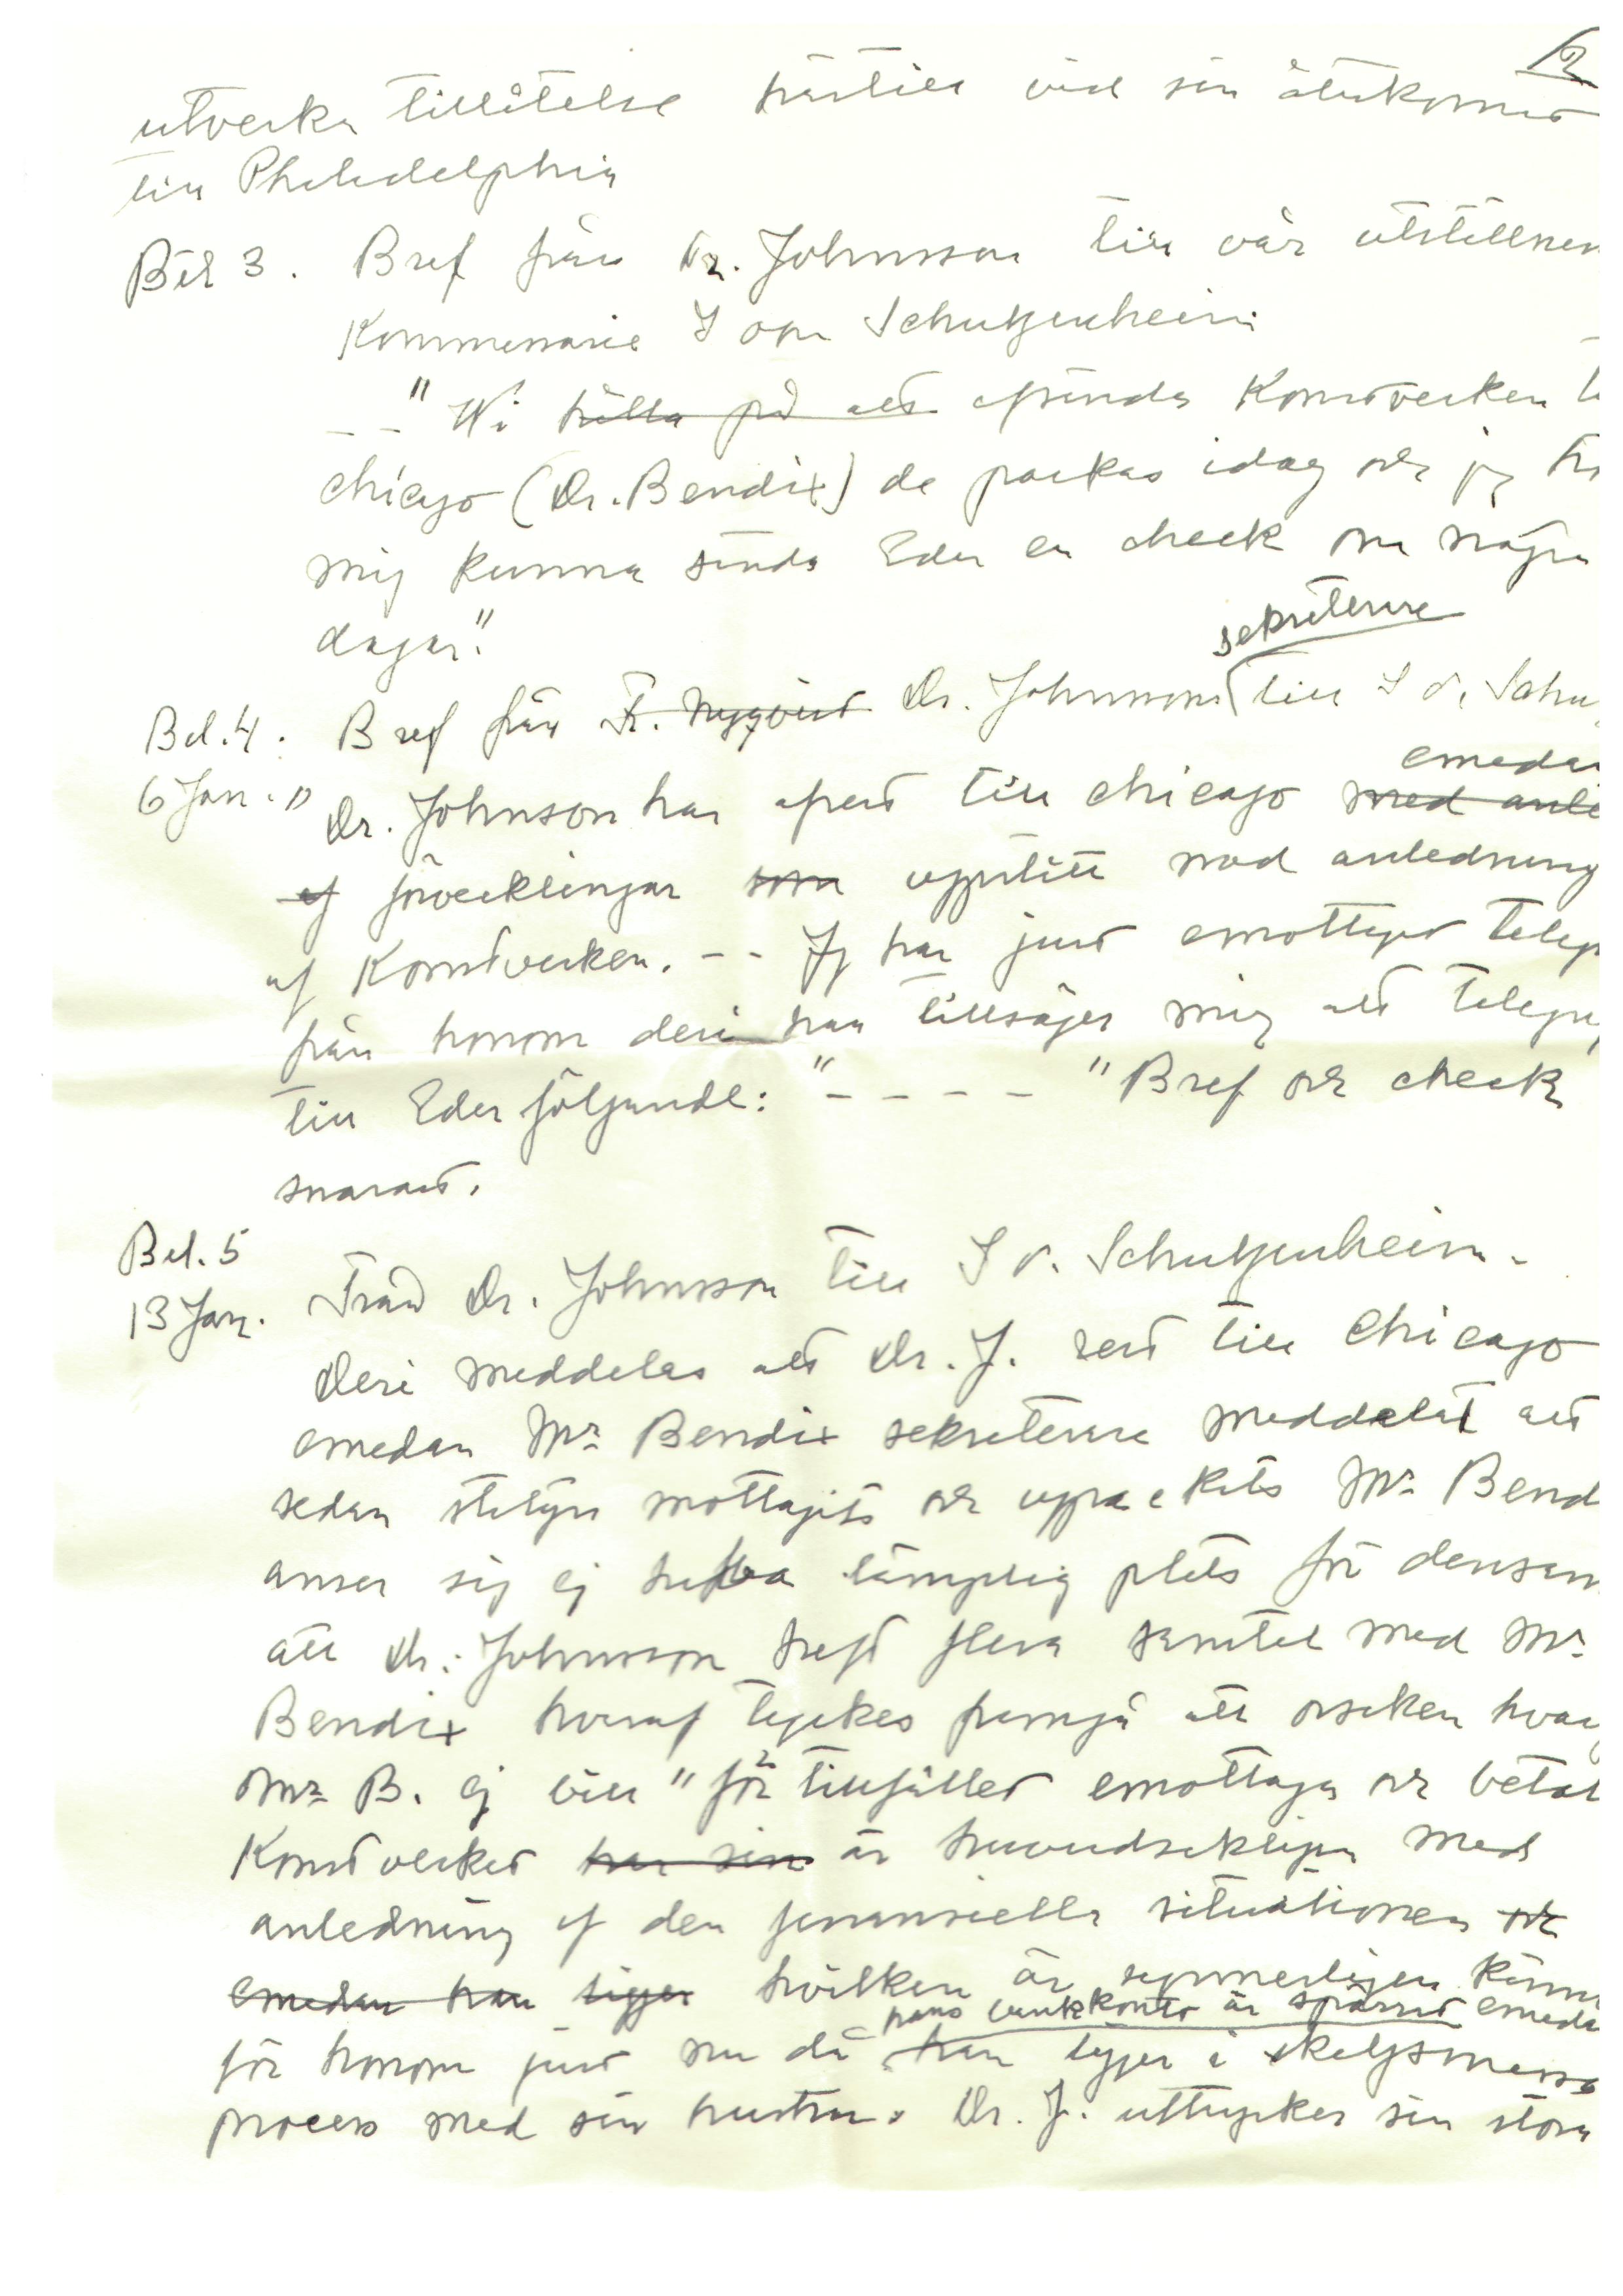 12
utverka tillåtelse härtill vid sin återkomst
till Philadelphia
Bil 3. Bref från Dr. Johnsson till vår utställnin
Kommissarie I von Schulzenheim
-- "Wi hålla på att afsända Konstverken t
Chicago (Dr. Bendix) de packas idag och jag
mig kunna sända Eder en check om några
dagar."
sekreterare
Bil. 4. Bref från Fr. Nyqvist Dr. Johnsons till I v. Schu
emedan
6 Jan. " Dr. Johnson har afrest till Chicago med anle
af förvecklingar som uppstått med anledning
af Konstverken. -- Jg har just emottagit telegr
från honom deri han tillsäger mig att telegra
till Eder följande: "---- "Bref och check
snarast.
Bil. 5
13 Jan. Från Dr. Johnsson till I v. Schulzenheim.
Deri meddelas att Dr. J. rest till Chicago
emedan Mr Bendix sekreterare meddelat att
sedan statyn mottagits och uppackats Mr Bend
anser sig ej hafva lämplig plats för densam
att Dr. Johnsson haft flera samtal med Mr
Bendix hvaraf tyckes framgå att orsaken hvar
Mr B. ej vill "för tillfället emottaga och betal
Konstverket har sin är hufvudsakligen med
anledning af den finansiella situationen och
emedan han ligger hvilken är synnerligen Känn
hans bankkonto är spärrat emeda
för honom just nu då han ligger i skilsmesso
process med sin hustru. Dr. J. uttrycker sin stora